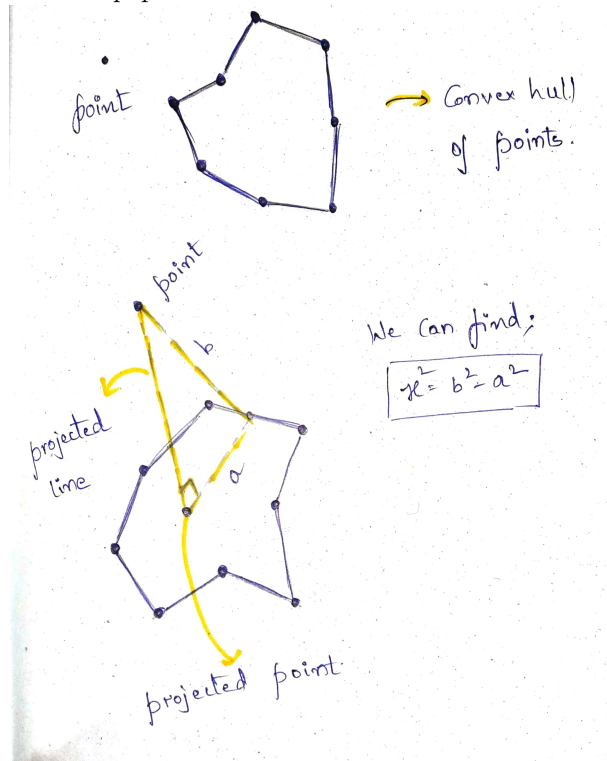 point
→ Convex hull
of points.
point
b
We can find;
x² = b² - a²
projected
line
a
projected point